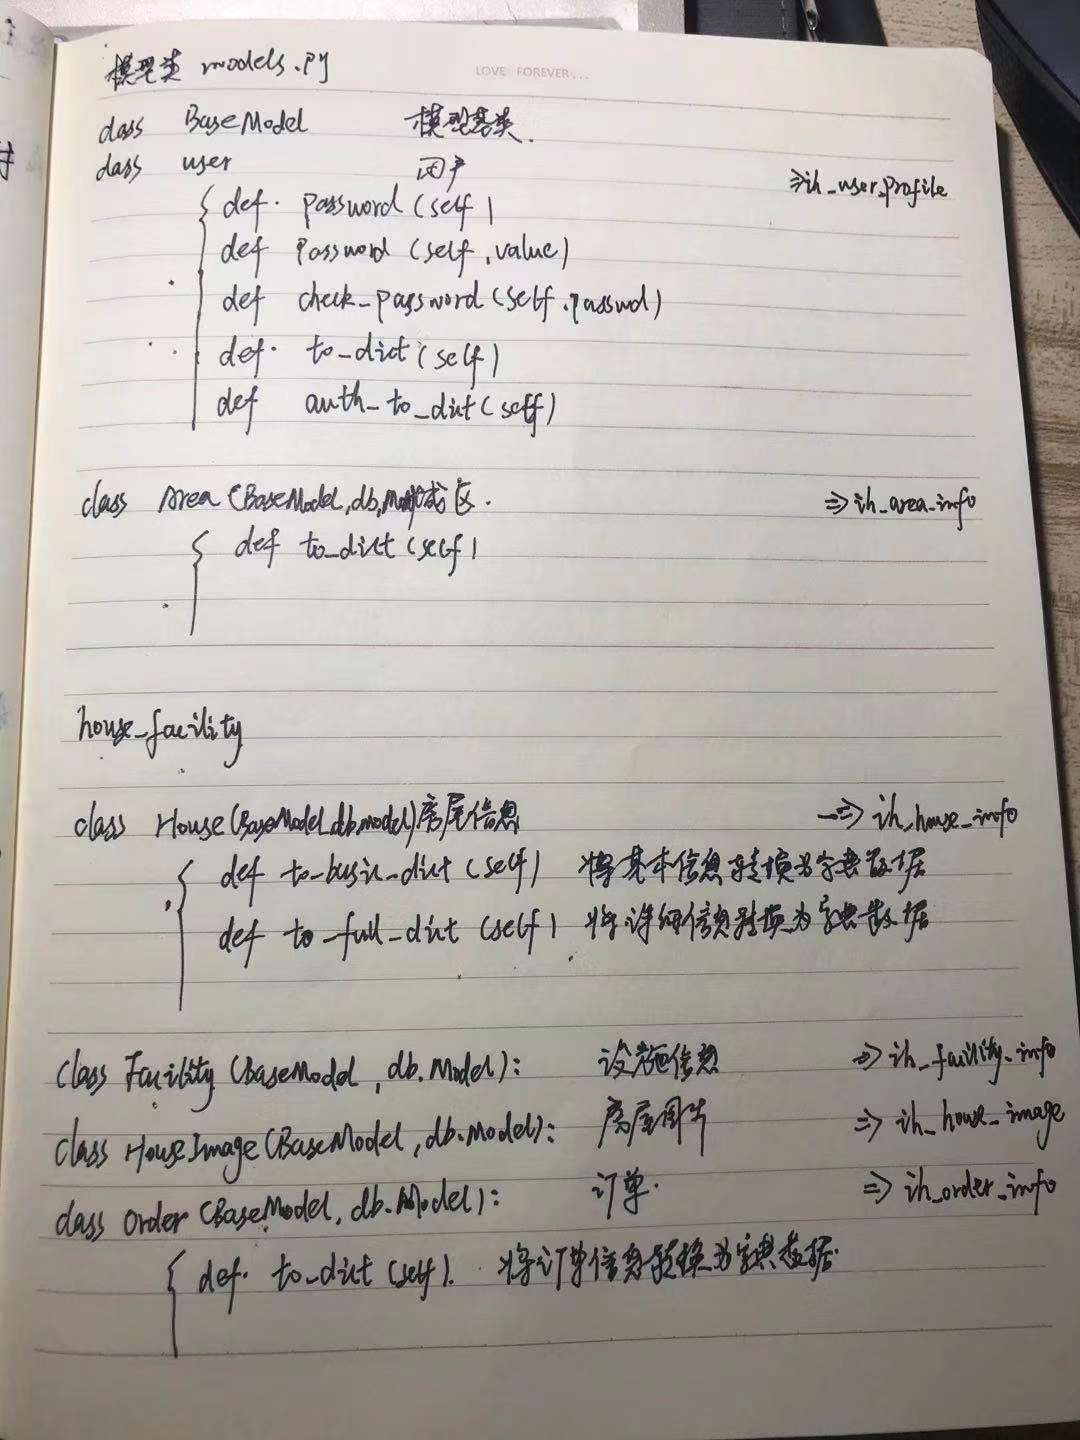 模型类 models.py
LOVE FOREVER...
class BaseModel 模型基类.
class user 用户 => ih_user_profile
{ def. password (self)
def password (self, value)
def check_password (self, passwd)
def. to_dict (self)
def auth_to_dict (self)
class Area (BaseModel, db, 城区. => ih_area_info
{ def to_dict (self)
house_facility
class House (BaseModel, db.model) 房屋信息 => ih_house_info
{ def to_basic_dict (self) 将基本信息转换为字典数据
def to_full_dict (self) 将详细信息转换为字典数据
class Facility (BaseModel, db.Model): 设施信息 => ih_facility_info
class HouseImage (BaseModel, db.Model): 房屋图片 => ih_house_image
class Order (BaseModel, db.Model): 订单. => ih_order_info
{ def. to_dict (self). 将订单信息转换为字典数据.